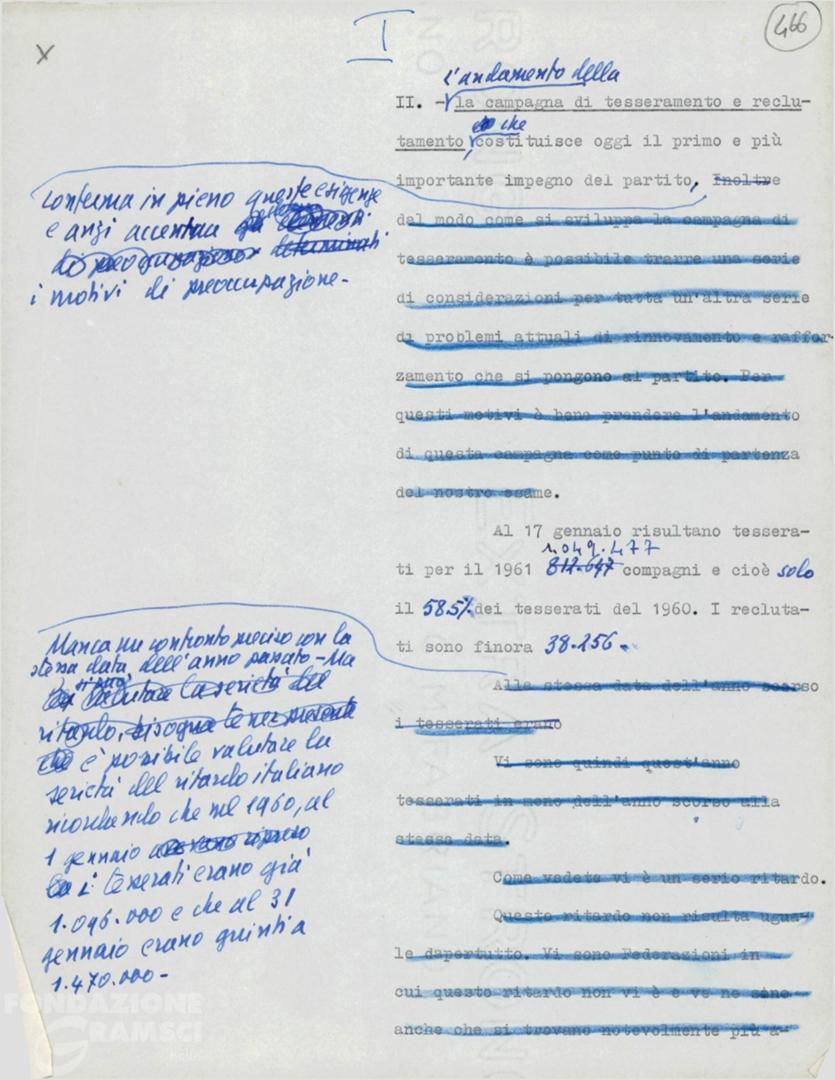 466
I
X
l'andamento della
II. - la campagna di tesseramento e reclu-
che
tamento costituisce oggi il primo e più
importante impegno del partito, Inoltre
conferma in pieno queste esigenze
e anzi accentua
i motivi di preoccupazione -
dal modo come si sviluppa la campagna di
tesseramento è possibile trarre una serie
di considerazioni per tutta un'altra serie
di problemi attuali di rinnovamento e raffor-
zamento che si pongono al partito. Per
questi motivi è bene prendere l'andamento
di questa campagna come punto di partenza
del nostro esame.
Al 17 gennaio risultano tessera-
1.049.477
ti per il 1961 812.647 compagni e cioè solo
il 58.5% dei tesserati del 1960. I recluta-
ti sono finora 38.256.
Manca un confronto preciso con la
stessa data dell'anno passato - Ma
valutare la serietà del
ritardo, bisogna tener presente
che è possibile valutare la
serietà del ritardo italiano
ricordando che nel 1960, al
1 gennaio
i tesserati erano già
1.096.000 e che al 31
gennaio erano giunti a
1.470.000 -
Alla stessa data dell'anno scorso
i tesserati erano
Vi sono quindi quest'anno
tesserati in meno dell'anno scorso alla
stessa data.
Come vedete vi è un serio ritardo.
Questo ritardo non risulta ugua-
le dapertutto. Vi sono Federazioni in
cui questo ritardo non vi è e ve ne sono
anche che si trovano notevolmente più a-
FONDAZIONE
GRAMSCI